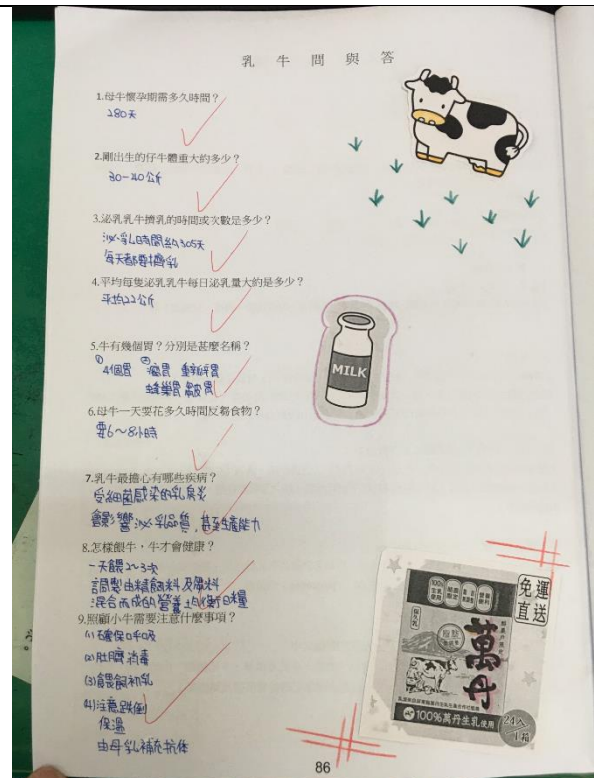 乳牛問與答
1.母牛懷孕期需多久時間？
280天
2.剛出生的仔牛體重大約多少？
30-40公斤
3.泌乳乳牛擠乳的時間或次數是多少？
泌乳時間約305天
每天都要擠乳
4.平均每隻泌乳乳牛每日泌乳量大約是多少？
平均22公斤
5.牛有幾個胃？分別是甚麼名稱？
① 4個胃 ② 瘤胃 重瓣胃
蜂巢胃 皺胃
6.母牛一天要花多久時間反芻食物？
要6～8小時
7.乳牛最擔心有哪些疾病？
受細菌感染的乳房炎
會影響泌乳品質，甚至生產能力
8.怎樣餵牛，牛才會健康？
一天餵2～3次
調製由精飼料及芻料
混合而成的營養均衡日糧
9.照顧小牛需要注意什麼事項？
(1)確保呼吸
(2)肚臍消毒
(3)餵飼初乳
(4)注意跌倒
保溫
由母乳補充抗体
MILK
免運
直送
萬丹
100%萬丹生乳使用
24入
1箱
86